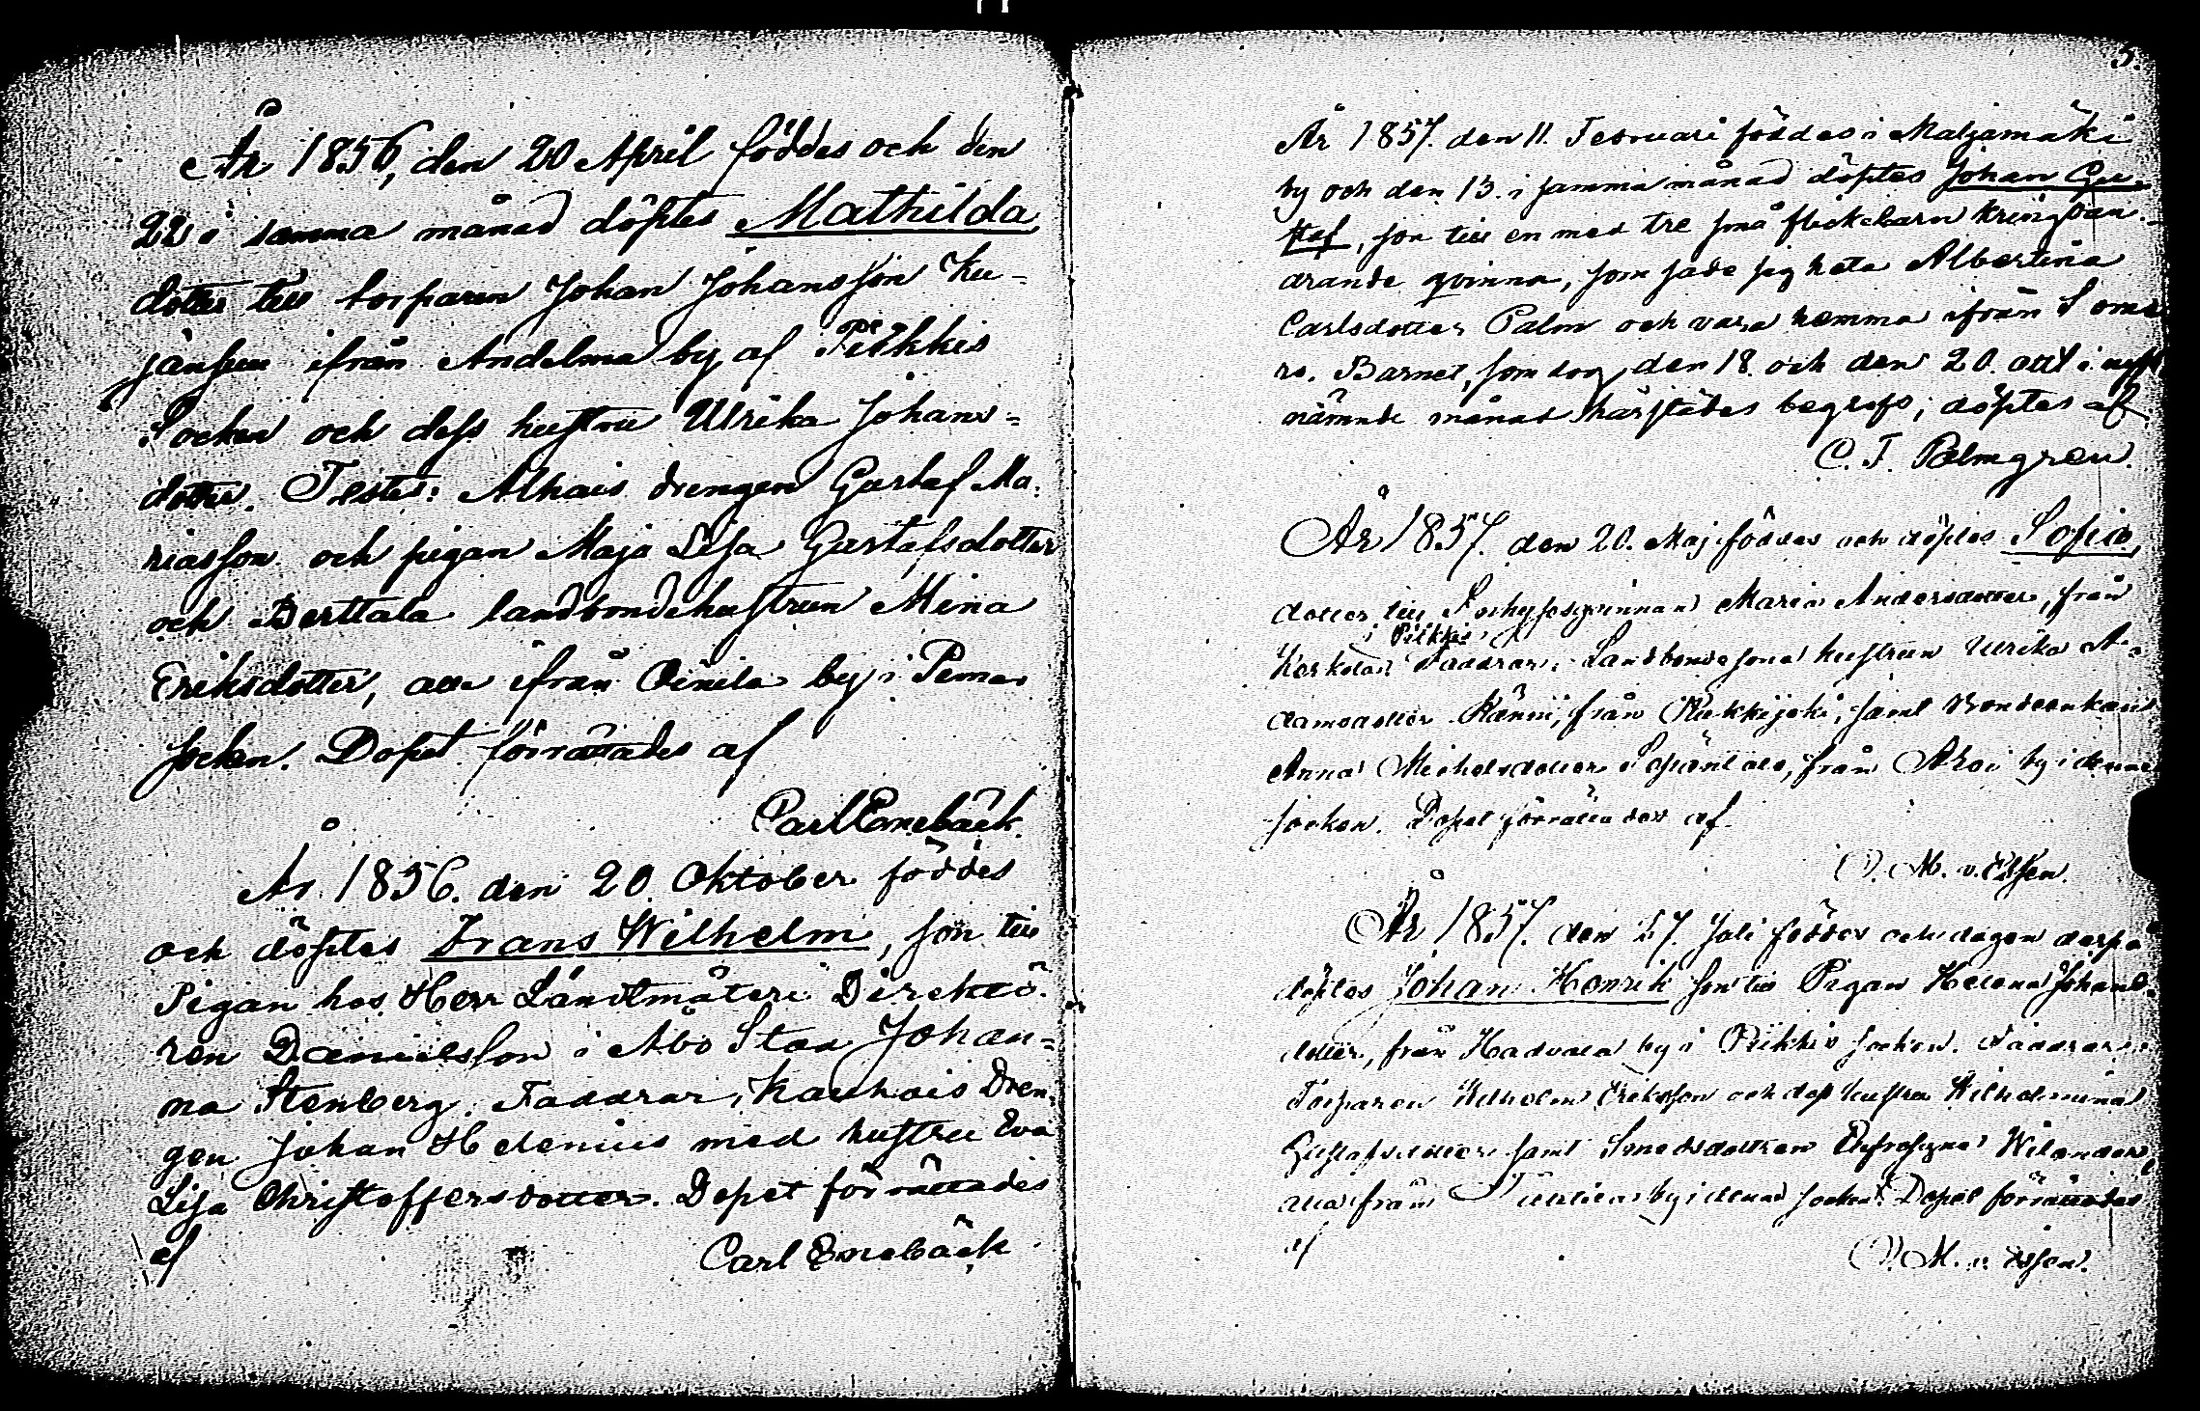 År 1856, den 20 April föddes och den
22 i samma månad döptes Mathilda,
dotter till torparen Johan Johansson Ku-
jänsuu ifrån Andelma by af Piikkis
Socken och dess hustru Ulrika Johans-
dotter. Testes: Alhais drengen Gustaf Ma-
riasson och pigan Maja Lisa Gustafsdotter
och Berttala landbondehustrun Mina
Eriksdotter, alla ifrån Oinila by i Pemar
socken. Dopet förrättades af
Carl Enebäck.
År 1856. den 20. Oktober föddes
och döptes Frans Wilhelm, son till
Pigan hos Herr Landtmäteri Direktö-
ren Danielsson i Åbo Stad Johan-
na Stenberg. Faddrar, Kauhais Dren-
gen Johan Helenius med hustru Eva
Lisa Christoffersdotter. Dopet förrättades
af Carl Enebäck
5.
År 1857. den 11. Februari föddes i Maljamäki
by och den 13. i samma månad döptes Johan Gu-
staf, son till en med tre små flickebarn kringvan-
drande qvinna, som sade sig heta Albertina
Carlsdotter Palm och vara hemma ifrån Somе-
ro. Barnet, som dog den 18. och den 20. allt i nyss
nämnde månad härstädes begrofs, döptes af
C. F. Palmgren.
År 1857. den 20. Maj föddes och döptes Sofia,
dotter till Inhysesqvinnan Maria Andersdotter, från
i Piikkis
Koskola. Faddrar: Landbondesone hustrun Ulrika A-
damsdotter från samt
Anna Michelsdotter från by i denna
socken. Dopet förrättades af
M. v. Essen.
År 1857. den 27. Juli föddes och dagen derpå
döptes Johan Henrik son till Pigan Helena Johans-
dotter, från Hadvala by i Piikkis socken. Faddrar:
Torparen Wilhelm Eriksson och dess hustru Wilhelmina
Gustafsdotter samt Smedsdottren Wilander,
alla från by i denna socken. Dopet förrättades
af M. v. Essen.